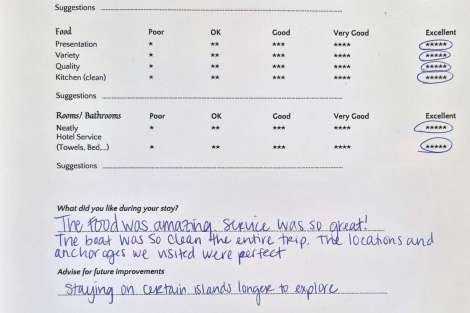 Suggestions
Food Poor OK Good Very Good Excellent
Presentation * ** *** **** *****
Variety * ** *** **** *****
Quality * ** *** **** *****
Kitchen (clean) * ** *** **** *****
Suggestions
Rooms/ Bathrooms Poor OK Good Very Good Excellent
Neatly * ** *** **** *****
Hotel Service
(Towels, Bed,..) * ** *** **** *****
Suggestions
What did you like during your stay?
The food was amazing. Service was so great!
The boat was so clean the entire trip. The locations and
anchorages we visited were perfect
Advise for future improvements
Staying on certain islands longer to explore